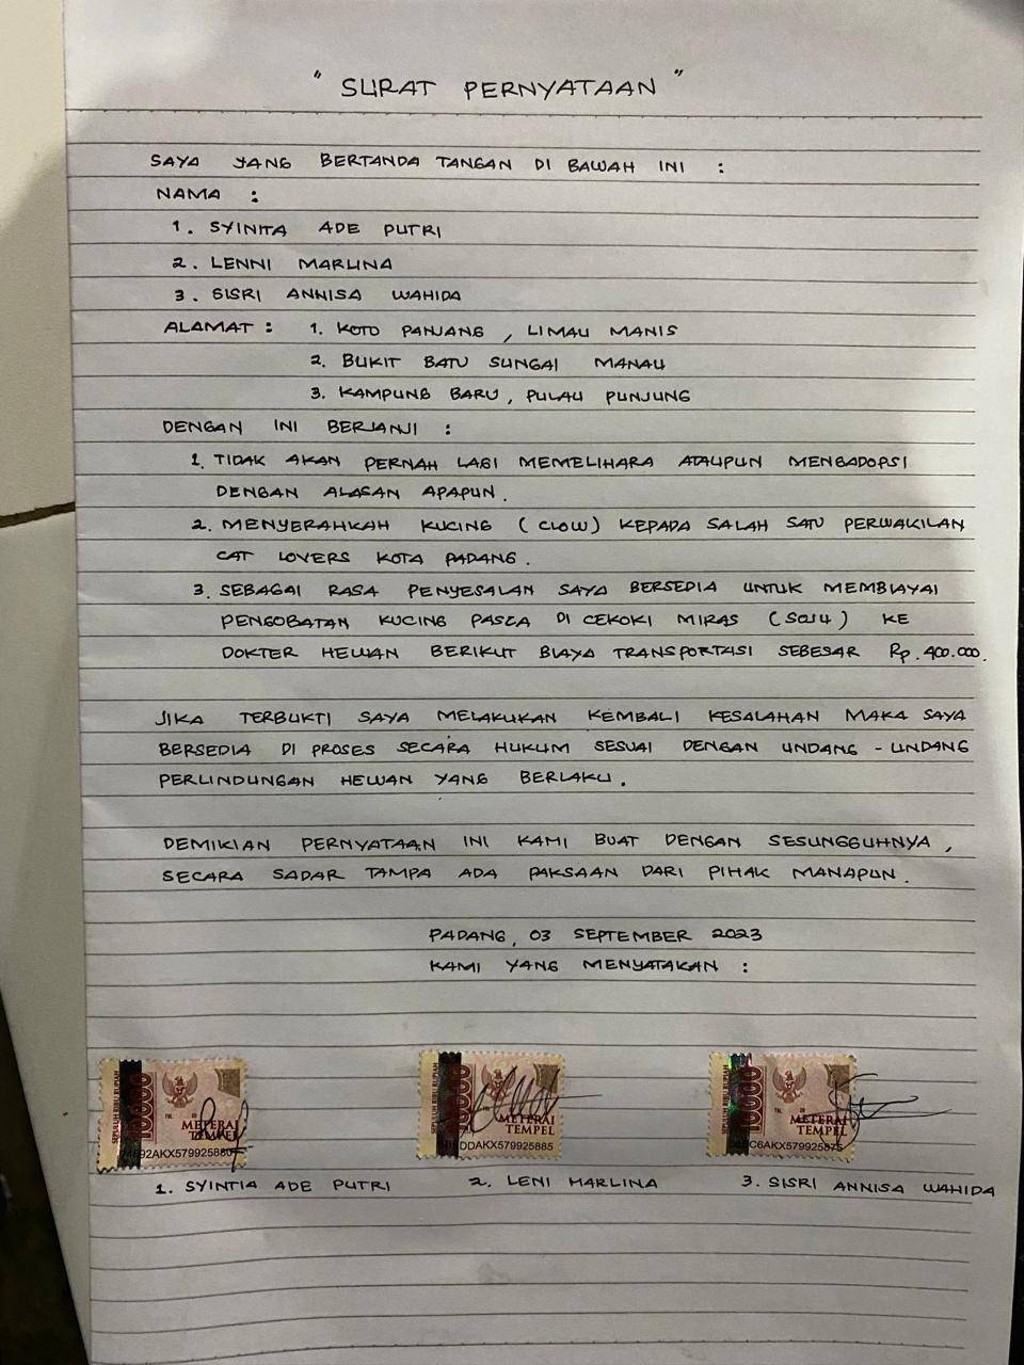 " SURAT PERNYATAAN "
SAYA YANG BERTANDA TANGAN DI BAWAH INI :
NAMA :
1. SYINITA ADE PUTRI
2. LENNI MARLINA
3. SISRI ANNISA WAHIDA
ALAMAT : 1. KOTO PANJANG , LIMAU MANIS
2. BUKIT BATU SUNGAI MANAU
3. KAMPUNG BARU, PULAU PUNJUNG
DENGAN INI BERJANJI :
1. TIDAK AKAN PERNAH LAGI MEMELIHARA ATAUPUN MENGADOPSI
DENGAN ALASAN APAPUN.
2. MENYERAHKAH KUCING (CLOW) KEPADA SALAH SATU PERWAKILAN
CAT LOVERS KOTA PADANG.
3. SEBAGAI RASA PENYESALAN SAYA BERSEDIA UNTUK MEMBIAYAI
PENGOBATAN KUCING PASCA DI CEKOKI MIRAS (SOJU) KE
DOKTER HEWAN BERIKUT BIAYA TRANSPORTASI SEBESAR Rp.400.000.
JIKA TERBUKTI SAYA MELAKUKAN KEMBALI KESALAHAN MAKA SAYA
BERSEDIA DI PROSES SECARA HUKUM SESUAI DENGAN UNDANG - UNDANG
PERLINDUNGAN HEWAN YANG BERLAKU.
DEMIKIAN PERNYATAAN INI KAMI BUAT DENGAN SESUNGGUHNYA,
SECARA SADAR TAMPA ADA PAKSAAN DARI PIHAK MANAPUN.
PADANG, 03 SEPTEMBER 2023
KAMI YANG MENYATAKAN :
SEPULUH RIBU RUPIAH 10000 METERAI TEMPEL
SEPULUH RIBU RUPIAH 10000 METERAI TEMPEL
SEPULUH RIBU RUPIAH 10000 METERAI TEMPEL
1. SYINTIA ADE PUTRI 2. LENI MARLINA 3. SISRI ANNISA WAHIDA